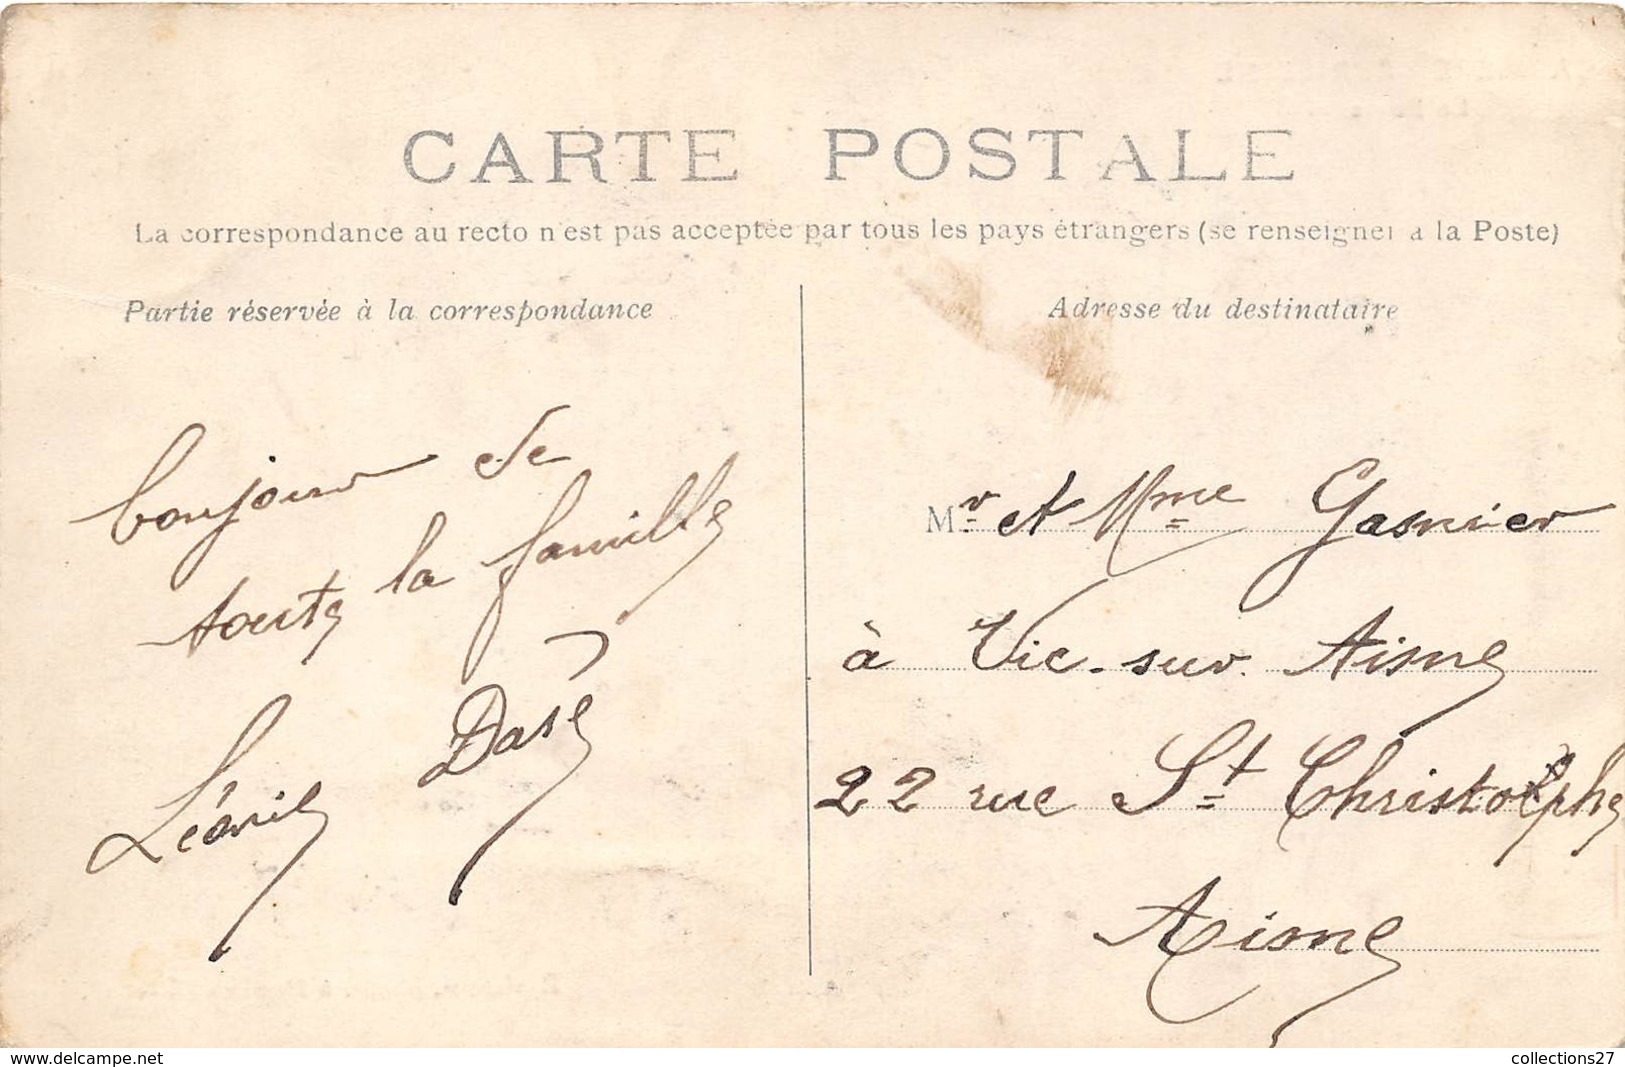 CARTE POSTALE
La correspondance au recto n'est pas acceptée par tous les pays étrangers (se renseigner à la Poste)
Partie réservée à la correspondance
bonjour de
toute la famille
Léonie Dasé
Adresse du destinataire
Mr et Mme Gasnier
à Vic-sur-Aisne
22 rue St Christolphe
Aisne
www.delcampe.net
collections27